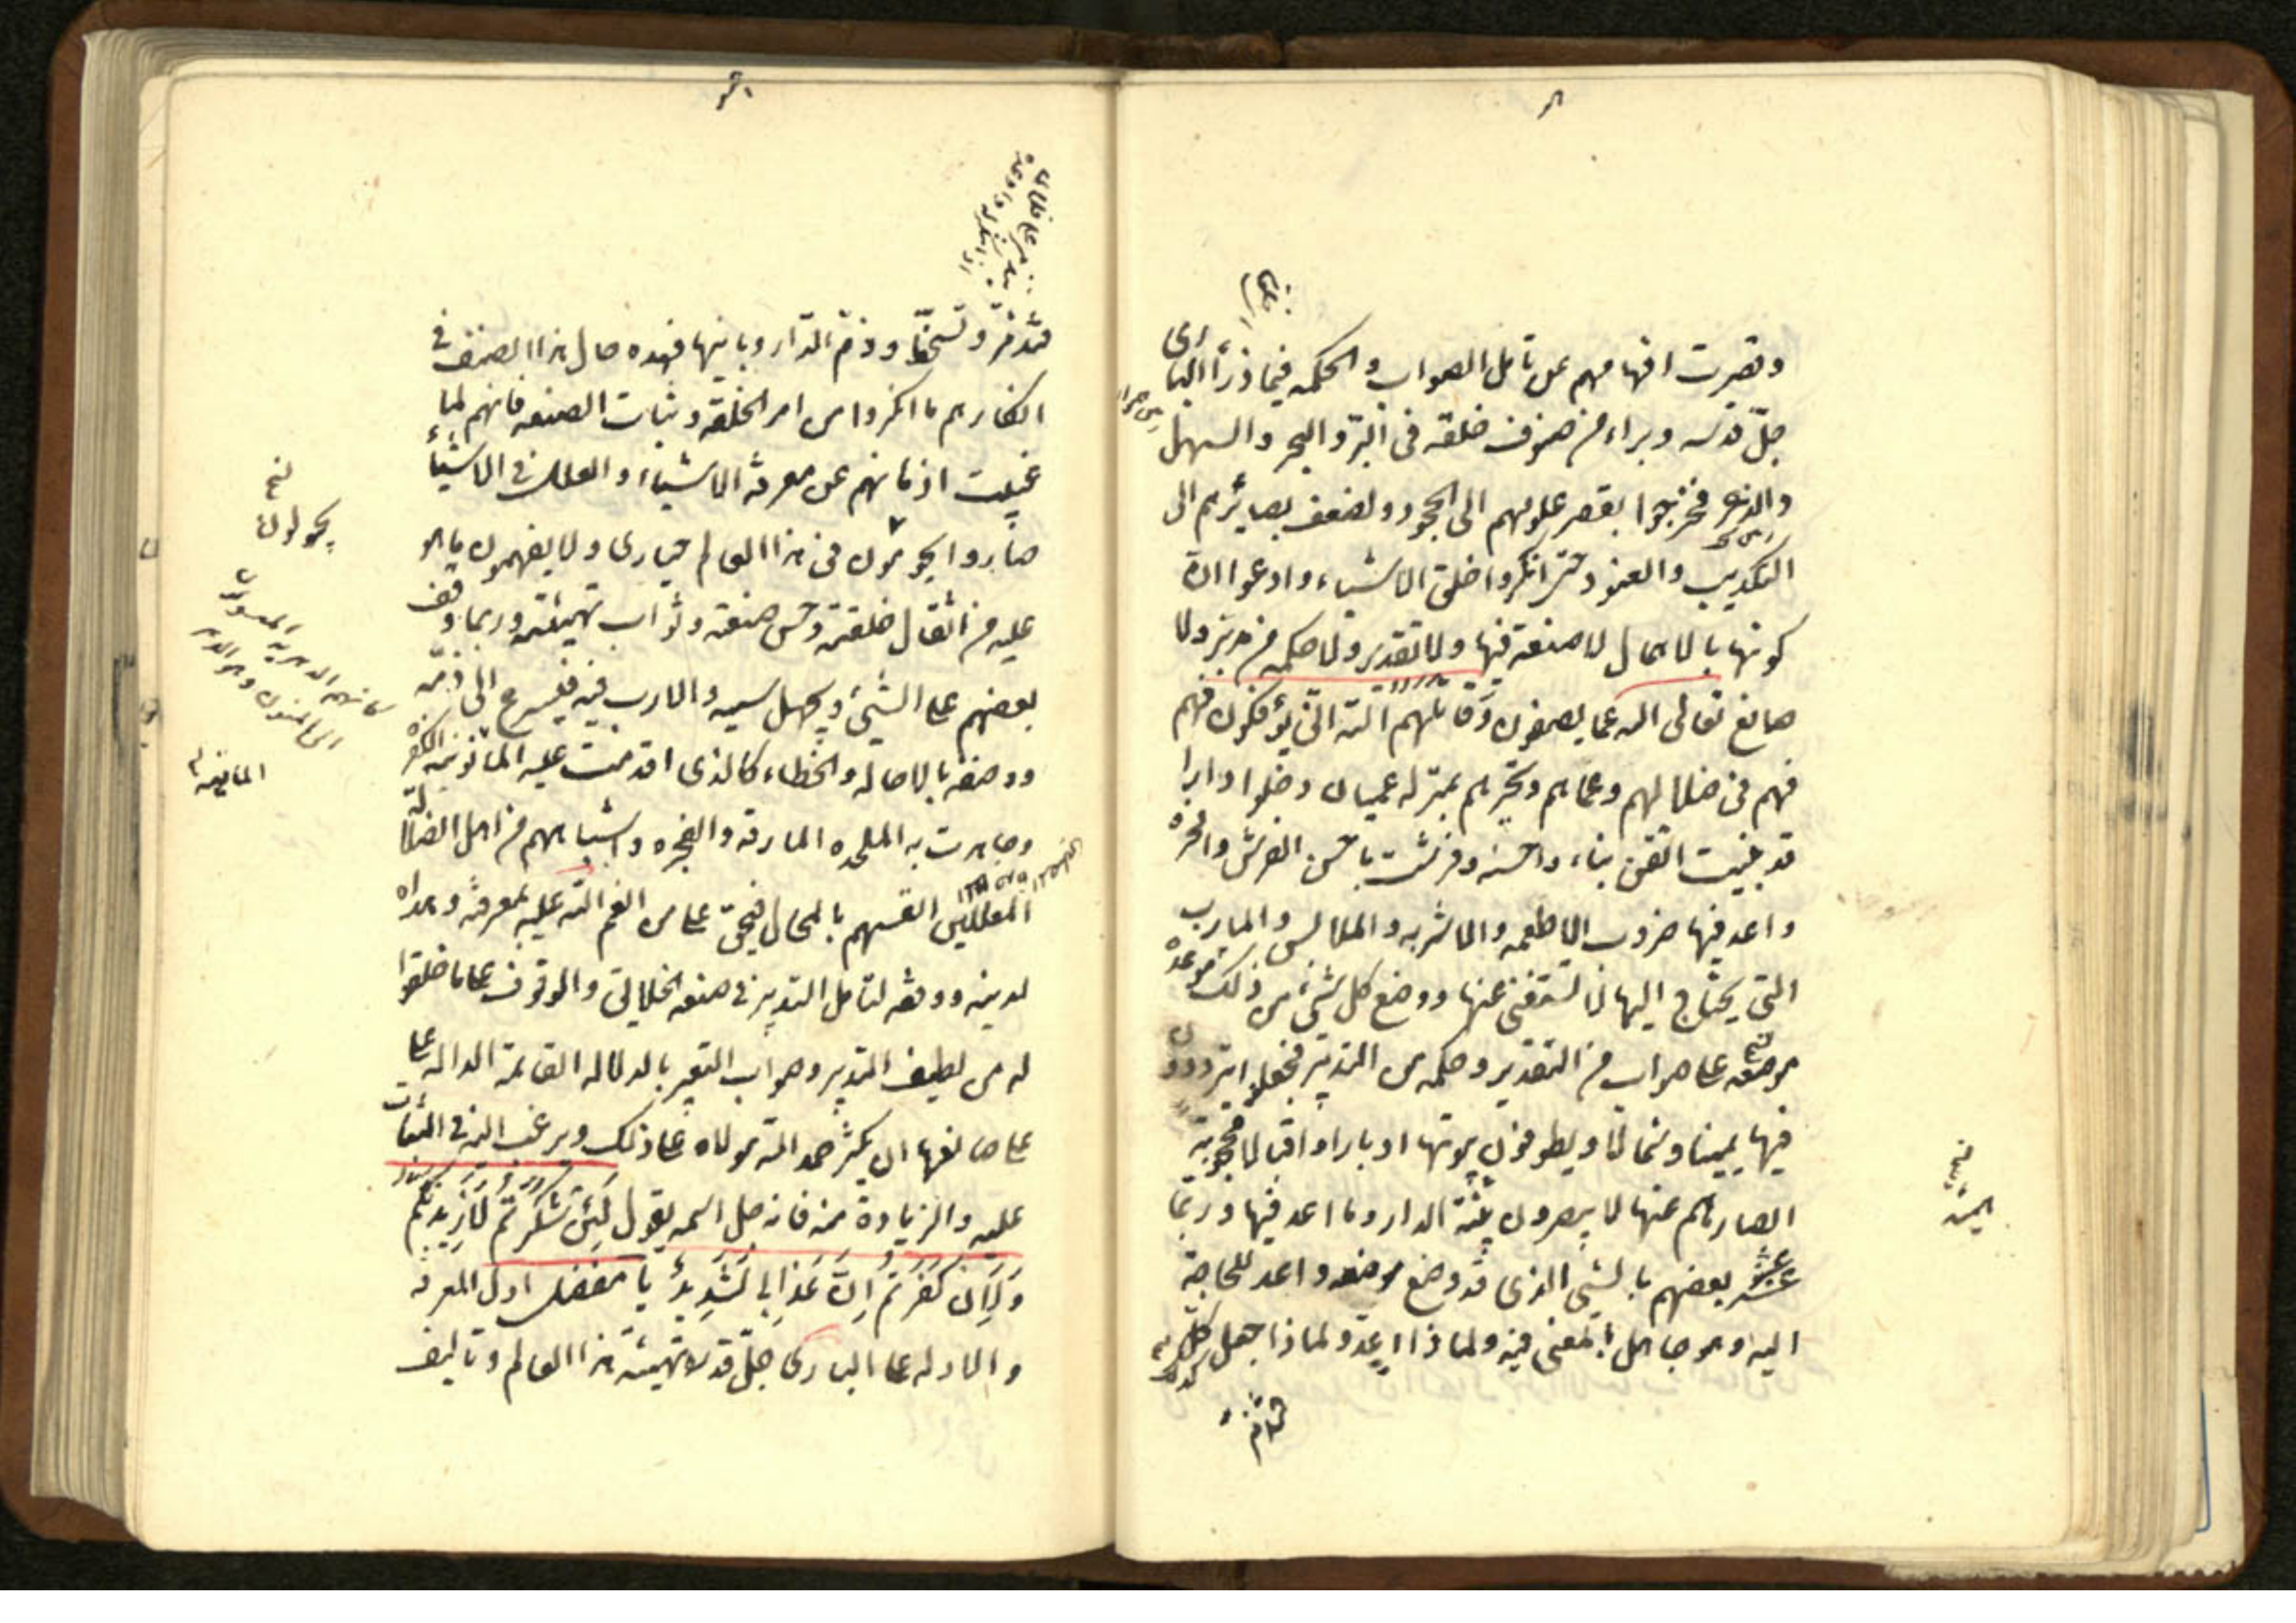 وقصرت افهامهم عن تامل الصواب والحكمه فيما ذرأ الباری
جلّ قدسه وبراء من صنوف خلقه فی البرّ والبحر والسهل
والوعر فخرجوا بقصر علومهم الی الجحود ولضعف بصائرهم الی
التكذيب والعنود حتی انكروا خلق الاشياء وادعوا ان
كونها بالاهمال لا صنعة فيها ولا تقدير ولا حكمه من مدبر ولا
صانع تعالی الله عما يصفون وقاتلهم الله انّی يؤفكون فهم
فهم فی ضلالهم وعماهم وتحيرهم بمنزله عميان دخلوا دارا
قد بنيت اتقن بناء واحسنه وفرشت باحسن الفرش وافخره
واعد فيها ضروب الاطعمه والاشربه والملابس والمارب
التی يحتاج اليها لا يستغنی عنها ووضع كل شیء من ذلك موضعه
موضعه علی صواب من التقدير وحكمه من التدبير فجعلوا يترددون
فيها يمينا وشمالا ويطوفون بيوتها ادبارا واقبالا محجوبة
ابصارهم عنها لا يبصرون بنية الدار وما اعد فيها وربما
عثر بعضهم بالشیء الذی قد وضع موضعه واعد للحاجة
اليه وهو جاهل بالمعنی فيه ولماذا اعدّ ولماذا جعل كذلك
فتذمّر وتسخّط وذمّ الدّار وبانيها فهذه حال هذا الصنف فی
انكارهم ما انكروا من امر الخلقة وثبات الصنعه فانهم لما
غبيت اذهانهم عن معرفة الاشياء والعلل فی الاشياء
صاروا يجولون فی هذا العالم حياری ولا يفهمون ما هو
عليه من اتقان خلقته وحسن صنعته وصواب تهيئته وربما وقف
بعضهم علی الشیء ويجهل سببه والارب فيه فيسرع الی ذمّه
ووصفه بالاحاله والخطاء كالذی اقدمت عليه المانويه الكفره
وجاهرت به الملحده المارقه والفجره واشباههم من اهل الضلاله
المعللين انفسهم بالمحال فيحق علی من انعم الله عليه بمعرفته وهداه
لدينه ووفقه لتامل التدبير فی صنعه الخلائق والوقوف علی ما خلقوا
له من لطيف التدبير وصواب التعبير بالدلاله القائمة الداله علی
علی صانعها ان يكثر حمد الله مولاه علی ذلك ويرغب اليه فی الثبات
عليه والزيادة منه فانه جل اسمه يقول لَئِن شكرتم لَازيدنّكم
وَلَئِن كفرتم اِنّ عَذابی لَشديدٌ يا مفضل اول المعرفه
والادله علی الباری جلّ قدسه تهيئة هذا العالم وتاليف